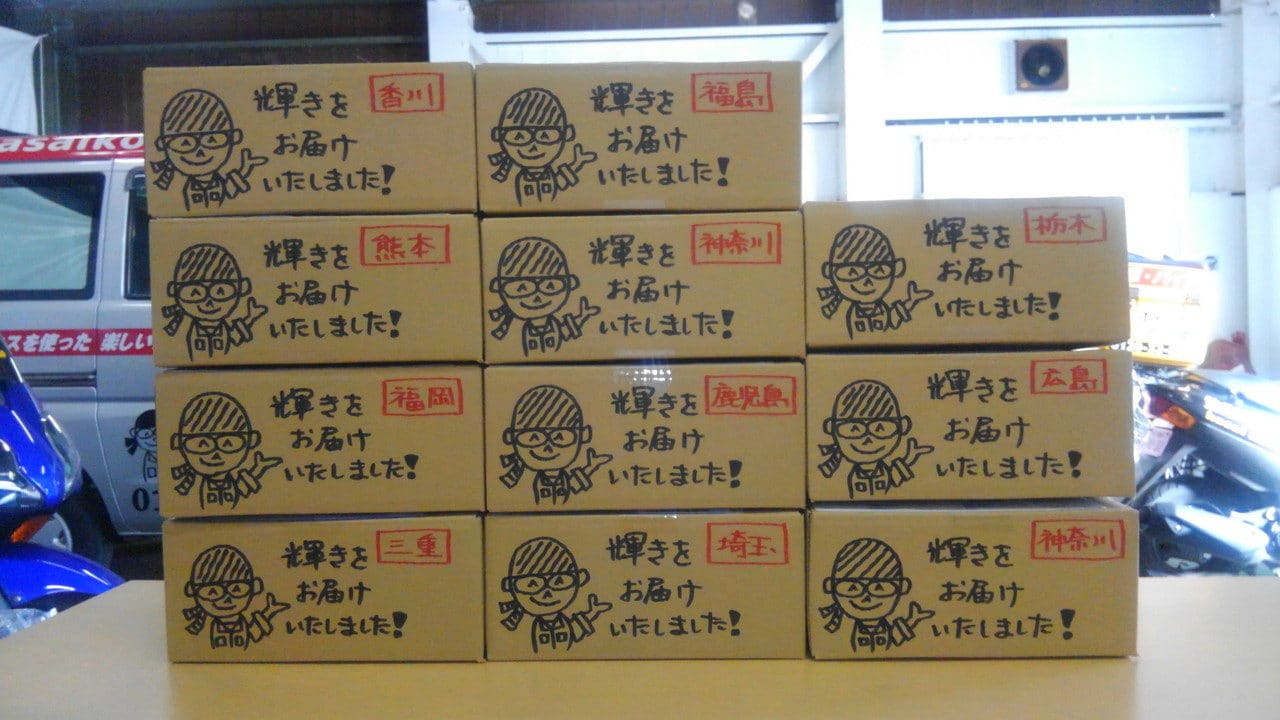 asaiko
スを使った 楽しい
香川
輝きを
お届け
いたしました!
福島
輝きを
お届け
いたしました!
熊本
輝きを
お届け
いたしました!
神奈川
輝きを
お届け
いたしました!
栃木
輝きを
お届け
いたしました!
福岡
輝きを
お届け
いたしました!
鹿児島
輝きを
お届け
いたしました!
広島
輝きを
お届け
いたしました!
三重
輝きを
お届け
いたしました!
埼玉
輝きを
お届け
いたしました!
神奈川
輝きを
お届け
いたしました!